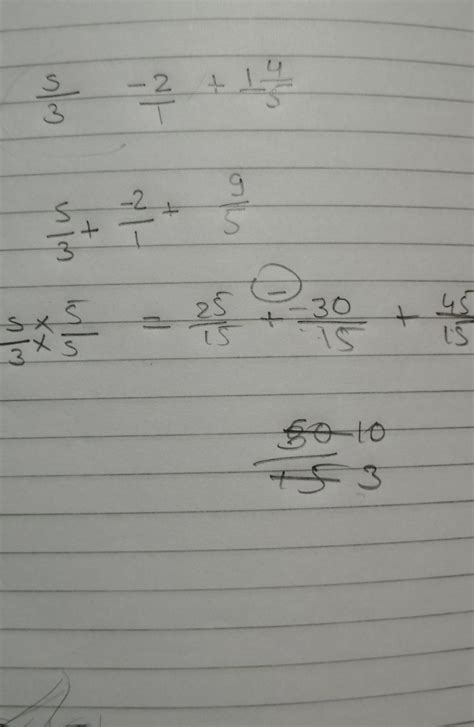 5/3 -2/1 + 1 4/5
5/3 + -2/1 + 9/5
5/3 × 5/5 = 25/15 + -30/15 + 45/15
50 10
15 3